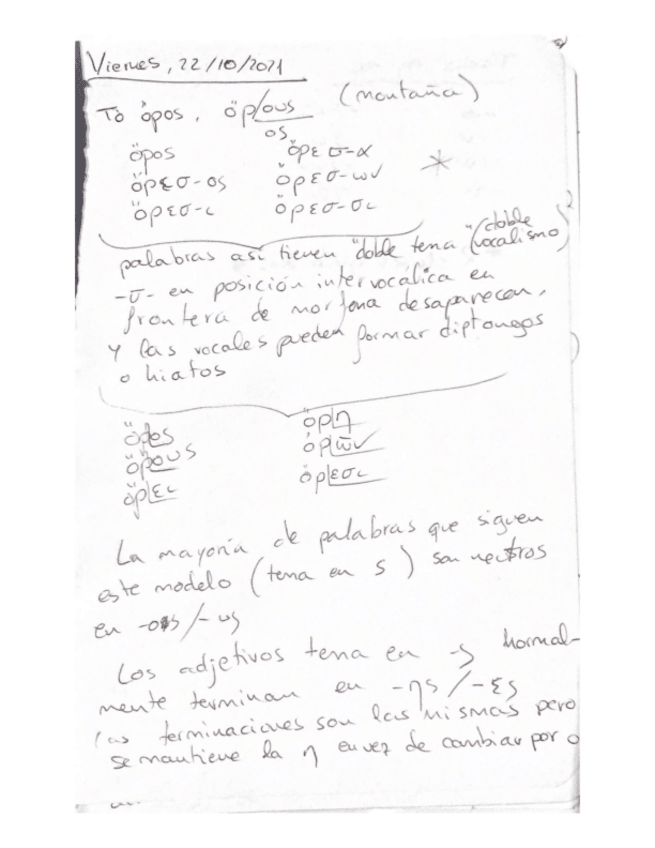 Viernes, 22/10/2021
Tò ὄρος, ὄρ/ους (montaña)
os
ὄρος ὄρεσ-α
ὄρεσ-os ὄρεσ-ων *
ὄρεσ-ι ὄρεσ-σι
palabras así tienen "doble tema" (doble vocalismo)
-σ- en posición intervocálica en
frontera de morfema desaparecen,
Y las vocales pueden formar diptongos
o hiatos
ὄρ|os ὄρ|η
ὄρ|ους ὀρ|ῶν
ὄρ|ει ὄρ|εσι
La mayoría de palabras que siguen
este modelo (tema en s) son neutros
en
Los adjetivos tema en -s normal-
mente terminan en -ης/-ες
las terminaciones son las mismas pero
se mantiene la η en vez de cambiar por o